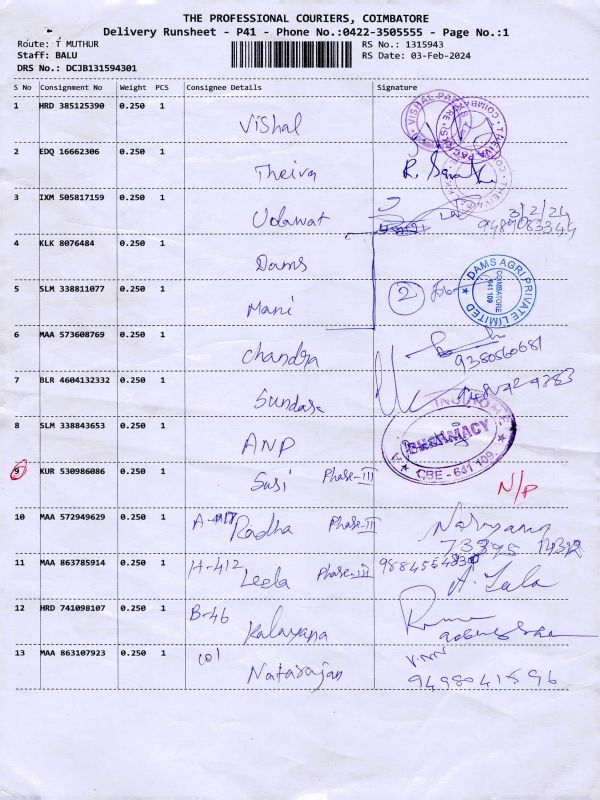 THE PROFESSIONAL COURIERS, COIMBATORE
Delivery Runsheet - P41 - Phone No.:0422-3505555 - Page No.:1
Route: T MUTHUR
RS No.: 1315943
Staff: BALU
RS Date: 03-Feb-2024
DRS No.: DCJB131594301
S No Consignment No Weight PCS Consignee Details Signature
1 HRD 385125390 0.250 1 Vishal
2 EDQ 16662306 0.250 1 Theiva
3 IXM 505817159 0.250 1 Udawat 3/2/24
9489083344
4 KLK 8076484 0.250 1 Dams
DAMS AGRI PRIVATE LIMITED
COIMBATORE
641 109
5 SLM 338811077 0.250 1 Mani 2
6 MAA 573608769 0.250 1 Chandra 9380560681
7 BLR 4604132332 0.250 1 Sundara
8 SLM 338843653 0.250 1 ANP
PHARMACY
CBE - 641 109.
9 KUR 530986086 0.250 1 Susi Phase-III N/P
10 MAA 572949629 0.250 1 Radha Phase-III
11 MAA 863785914 0.250 1 H-412 Leela Phase-III
12 HRD 741098107 0.250 1 B-46 Kalayana
13 MAA 863107923 0.250 1 Natarajan
9498041596